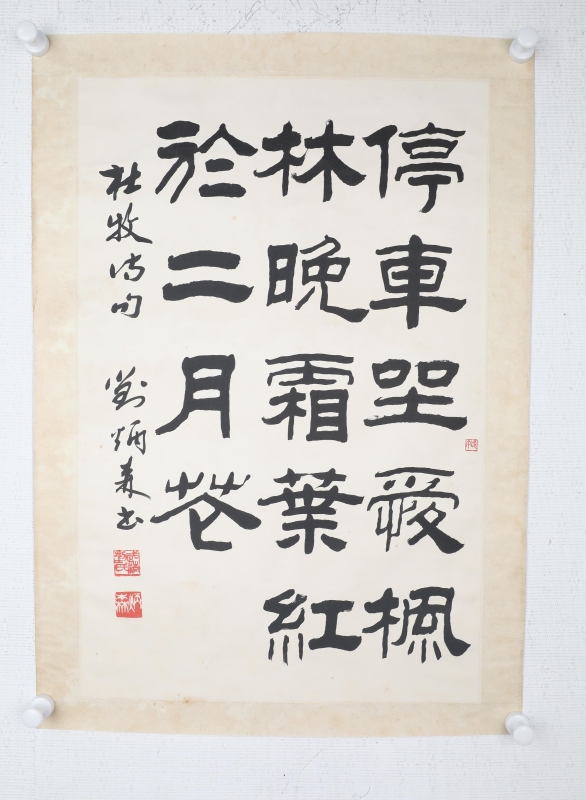 停車坐愛楓
林晚霜葉紅
於二月花
杜牧诗句 劉炳森书